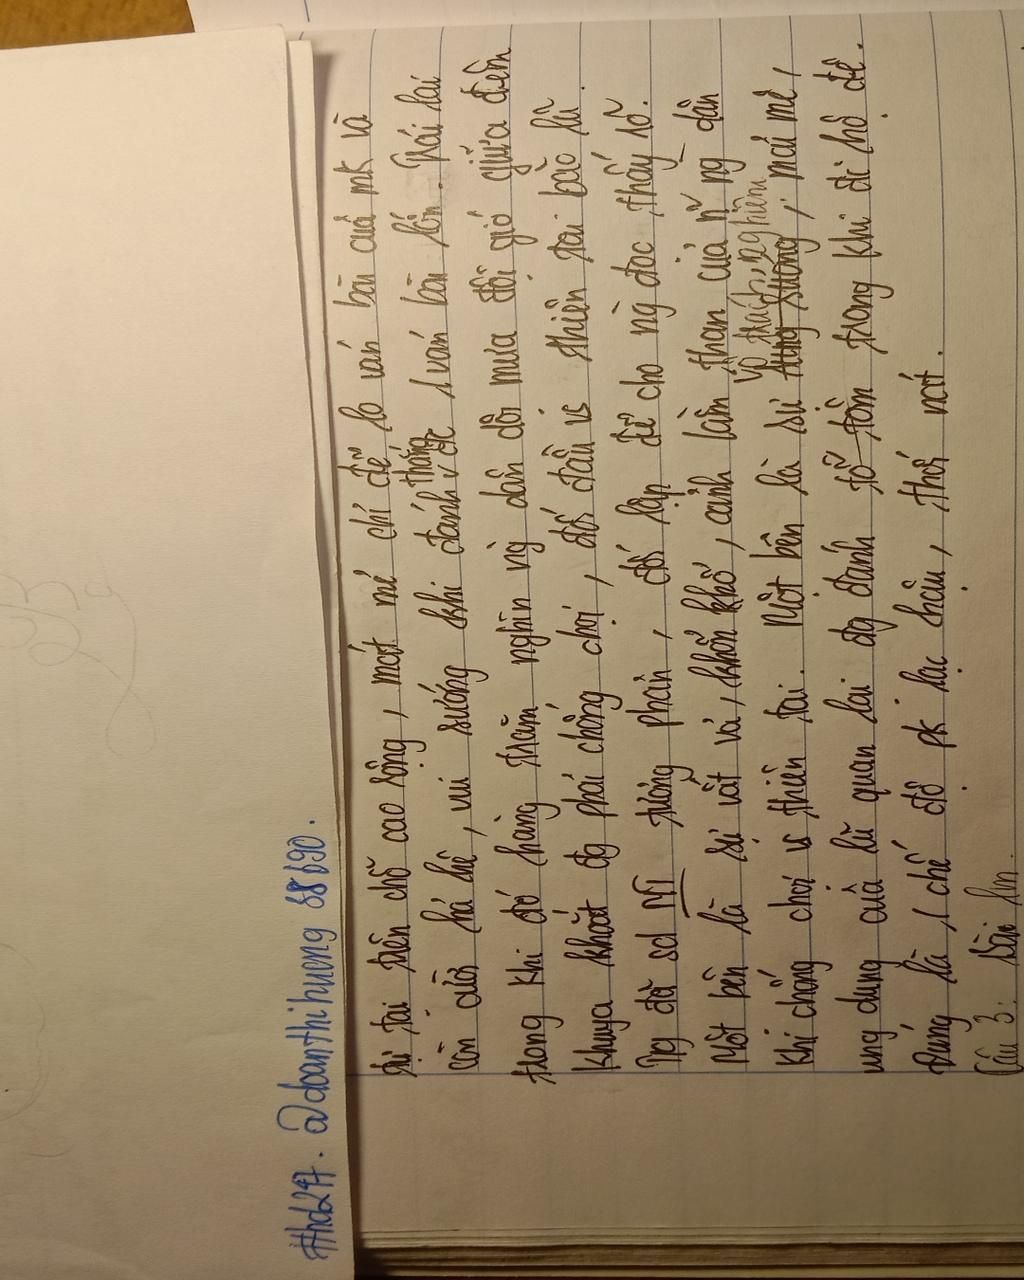 #hd247. @doanthihuong88690.
tai trên chỗ cao rộng, mát mẻ chỉ để lo ván bài của mk và
còn cười hả hê, vui sướng khi đánh thắng đc 1 ván bài lớn. Trái lại
trong khi đó hàng trăm nghìn ng dân dôi mưa đội gió giữa đêm
khuya khoắt đg phải chống chọi, đối đầu vs thiên tai bão lũ.
Ng đã sd NT tương phản, đối lập để cho ng đọc thấy rõ.
Một bên là sự vất vả, khốn khổ, cảnh lầm than của n~ ng dân
khi chống chọi vs thiên tai. Một bên là sự vô trách nghiệm, mải mê,
ung dung của lũ quan lại đg đánh tổ tôm trong khi đi hộ đê.
Đúng là 1 chế độ pk lạc hậu, thối nát.
Câu 3: